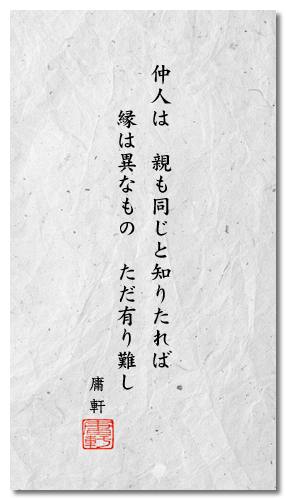 仲人は　親も同じと知りたれば
縁は異なもの　ただ有り難し
庸軒
庸軒